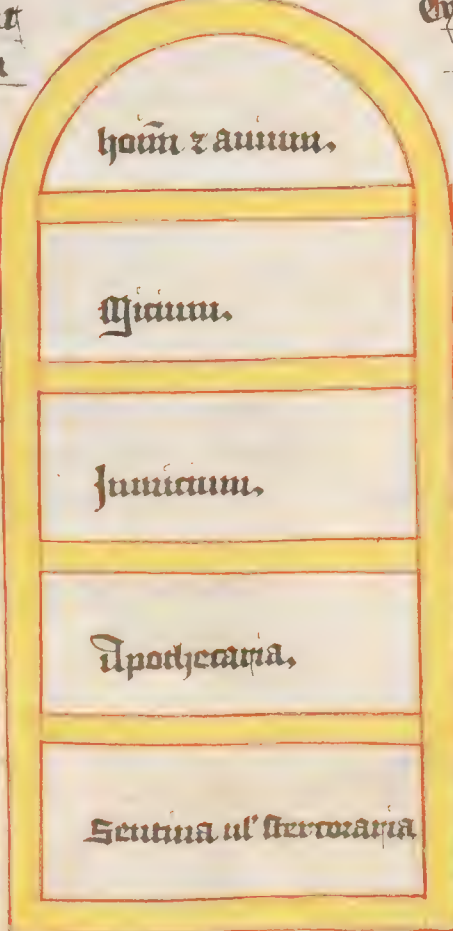 hoim̄ ⁊ auium.
Mitium.
Inmitium.
Apothecaria.
Sentina ul' stercoraria